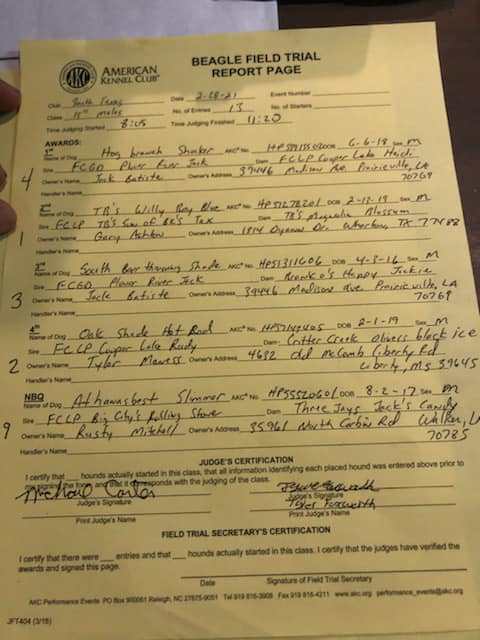 AMERICAN KENNEL CLUB®
BEAGLE FIELD TRIAL
REPORT PAGE
Club South Texas Date 2-28-21 Event Number
Class 15" males No. of Entries 13 No. of Starters
Time Judging Started 8:05 Time Judging Finished 11:20
AWARDS:
1st Name of Dog Hog branch Shaker AKC® No. DOB 6-6-18 Sex M
4 Sire FCGD Plover River Jack Dam FCLP Cooper Lake Heidi
Owner's Name Jack Batiste Owner's Address 39446 Madison Ave Prairieville, LA
Handler's Name 70769
2nd Name of Dog TB's Willy Bay Blue AKC® No. DOB 2-12-19 Sex M
1 Sire FCLP TB's Son of BE's Tex Dam TB's Magnolia Blossom
Owner's Name Gary Owner's Address 1814 Dr. Wharton, TX 77488
Handler's Name
3rd Name of Dog South Shade AKC® No. HP51311606 DOB 4-3-16 Sex M
Sire FCGD Plover River Jack Dam Branko's Happy Jackie
3 Owner's Name Jack Batiste Owner's Address 39446 Madison Ave Prairieville, LA
Handler's Name 70769
4th Name of Dog Oak Shade Hot Rod AKC® No. DOB 2-1-19 Sex M
Sire FCLP Cooper Lake Rudy Dam Critter Creek Olivers black ice
2 Owner's Name Tyler Owner's Address 4632 old McComb Liberty Rd
Handler's Name Liberty, MS 39645
NBQ Name of Dog Athawnsbest Slimmer AKC® No. HP55520601 DOB 8-2-17 Sex M
Sire FCLP Big City's Rolling Stover Dam Three Jays Jack's Candy
9 Owner's Name Rusty Mitchell Owner's Address 35961 North Corbin Rd Walker, L
Handler's Name 70785
JUDGE'S CERTIFICATION
I certify that hounds actually started in this class, that all information identifying each placed hound was entered above prior to
my signing the form and that it corresponds with the judging of the class.
Michael Carter
Judge's Signature Judge's Signature
Print Judge's Name Print Judge's Name
FIELD TRIAL SECRETARY'S CERTIFICATION
I certify that there were entries and that hounds actually started in this class. I certify that the judges have verified the
awards and signed this page.
Date Signature of Field Trial Secretary
AKC Performance Events PO Box 900051 Raleigh, NC 27675-9051 Tel 919 816-3908 Fax 919 816-4211 www.akc.org performance_events@akc.org
JFT404 (3/16)